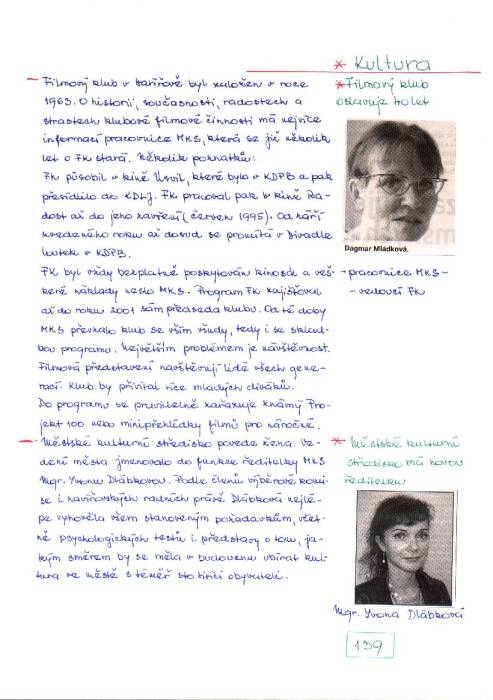 * Kultura
– Filmový klub v Havířově byl založen v roce
1963. O historii, současnosti, radostech a
strastech klubové filmové činnosti má nejvíce
informací pracovnice MKS, která se již několik
let o FK stará. Několik poznatků:
FK působil v kině Úsvit, které bylo v KDPB a pak
přesídlilo do KDLJ. FK pracoval pak v kině Ra-
dost až do jeho zavření (červen 1995). Od září
uvedeného roku až dosud se promítá v Divadle
loutek v KDPB.
FK byl vždy bezplatně poskytován kinosál a veš-
keré náklady neslo MKS. Program FK zajišťoval
až do roku 2001 sám předseda klubu. Od té doby
MKS převzalo klub se vším všudy, tedy i se sklad-
bou programu. Největším problémem je návštěvnost.
Filmová představení navštěvují lidé všech gene-
rací. Klub by přivítal více mladých diváků.
Do programu se pravidelně zařazuje známý Pro-
jekt 100 nebo minipřehlídky filmů pro náročné.
– Městské kulturní středisko povede žena. Ve-
dení města jmenovalo do funkce ředitelky MKS
Mgr. Yvonu Dlábkovou. Podle členů výběrové komi-
se i havířovských radních právě Dlábková nejlé-
pe vyhověla všem stanoveným požadavkům, včet-
ně psychologických testů i představy o tom, ja-
kým směrem by se měla v budoucnu ubírat kul-
tura ve městě s téměř sto tisíci obyvateli.
* Filmový klub
oslavuje 40 let
Dagmar Mládková.
- pracovnice MKS -
- vedoucí FK
* Městské kulturní
středisko má novou
ředitelku
Mgr. Yvona Dlábková
139